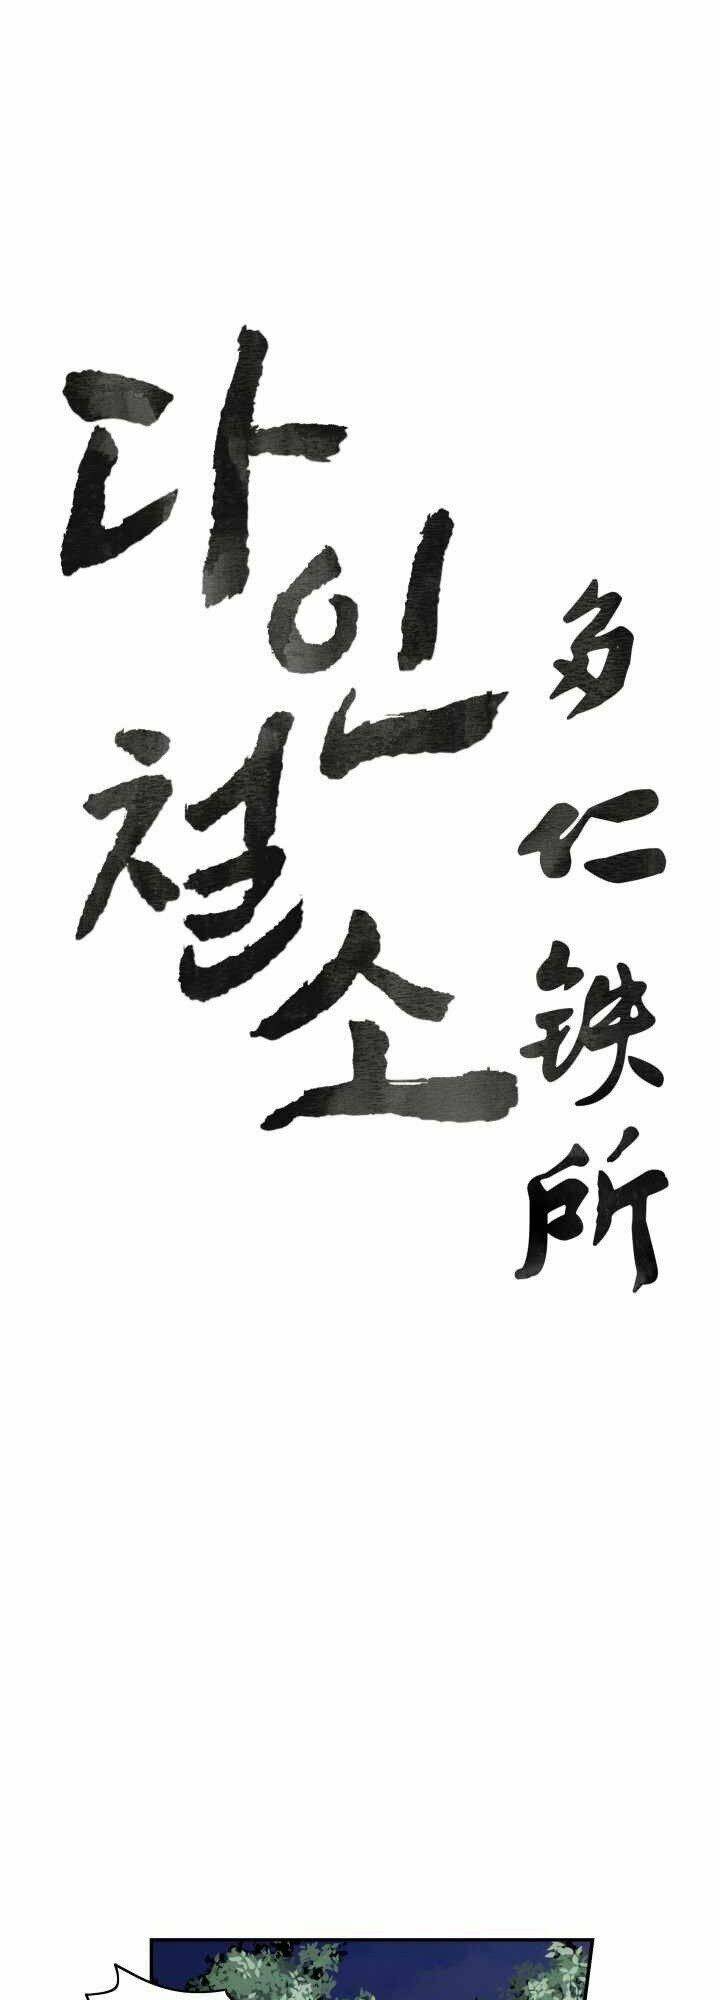 다인
철소
多仁鉄所